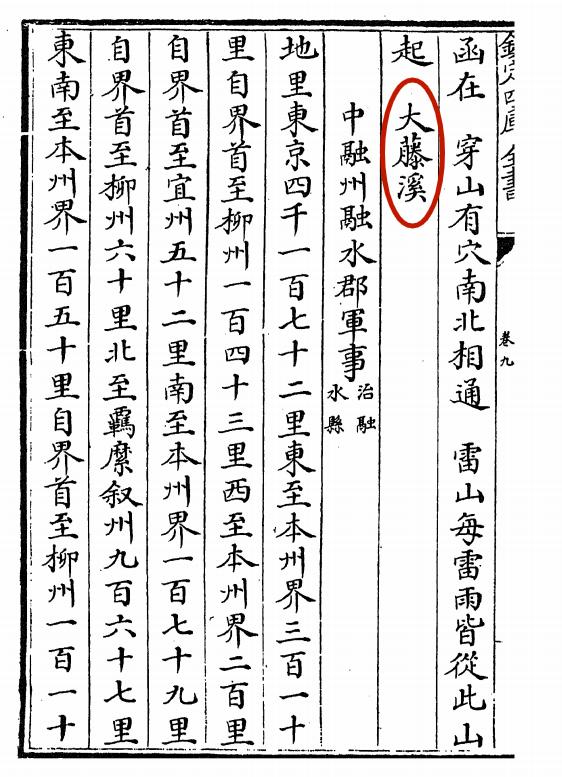 欽定四庫全書
卷九
函在　穿山有穴南北相通　雷山每雷雨皆從此山
起　大藤溪
中融州融水郡軍事治融水縣
地里東京四千一百七十二里東至本州界三百一十
里自界首至柳州一百四十三里西至本州界二百里
自界首至宜州五十二里南至本州界一百七十九里
自界首至柳州六十里北至羈縻叙州九百六十七里
東南至本州界一百五十里自界首至柳州一百一十